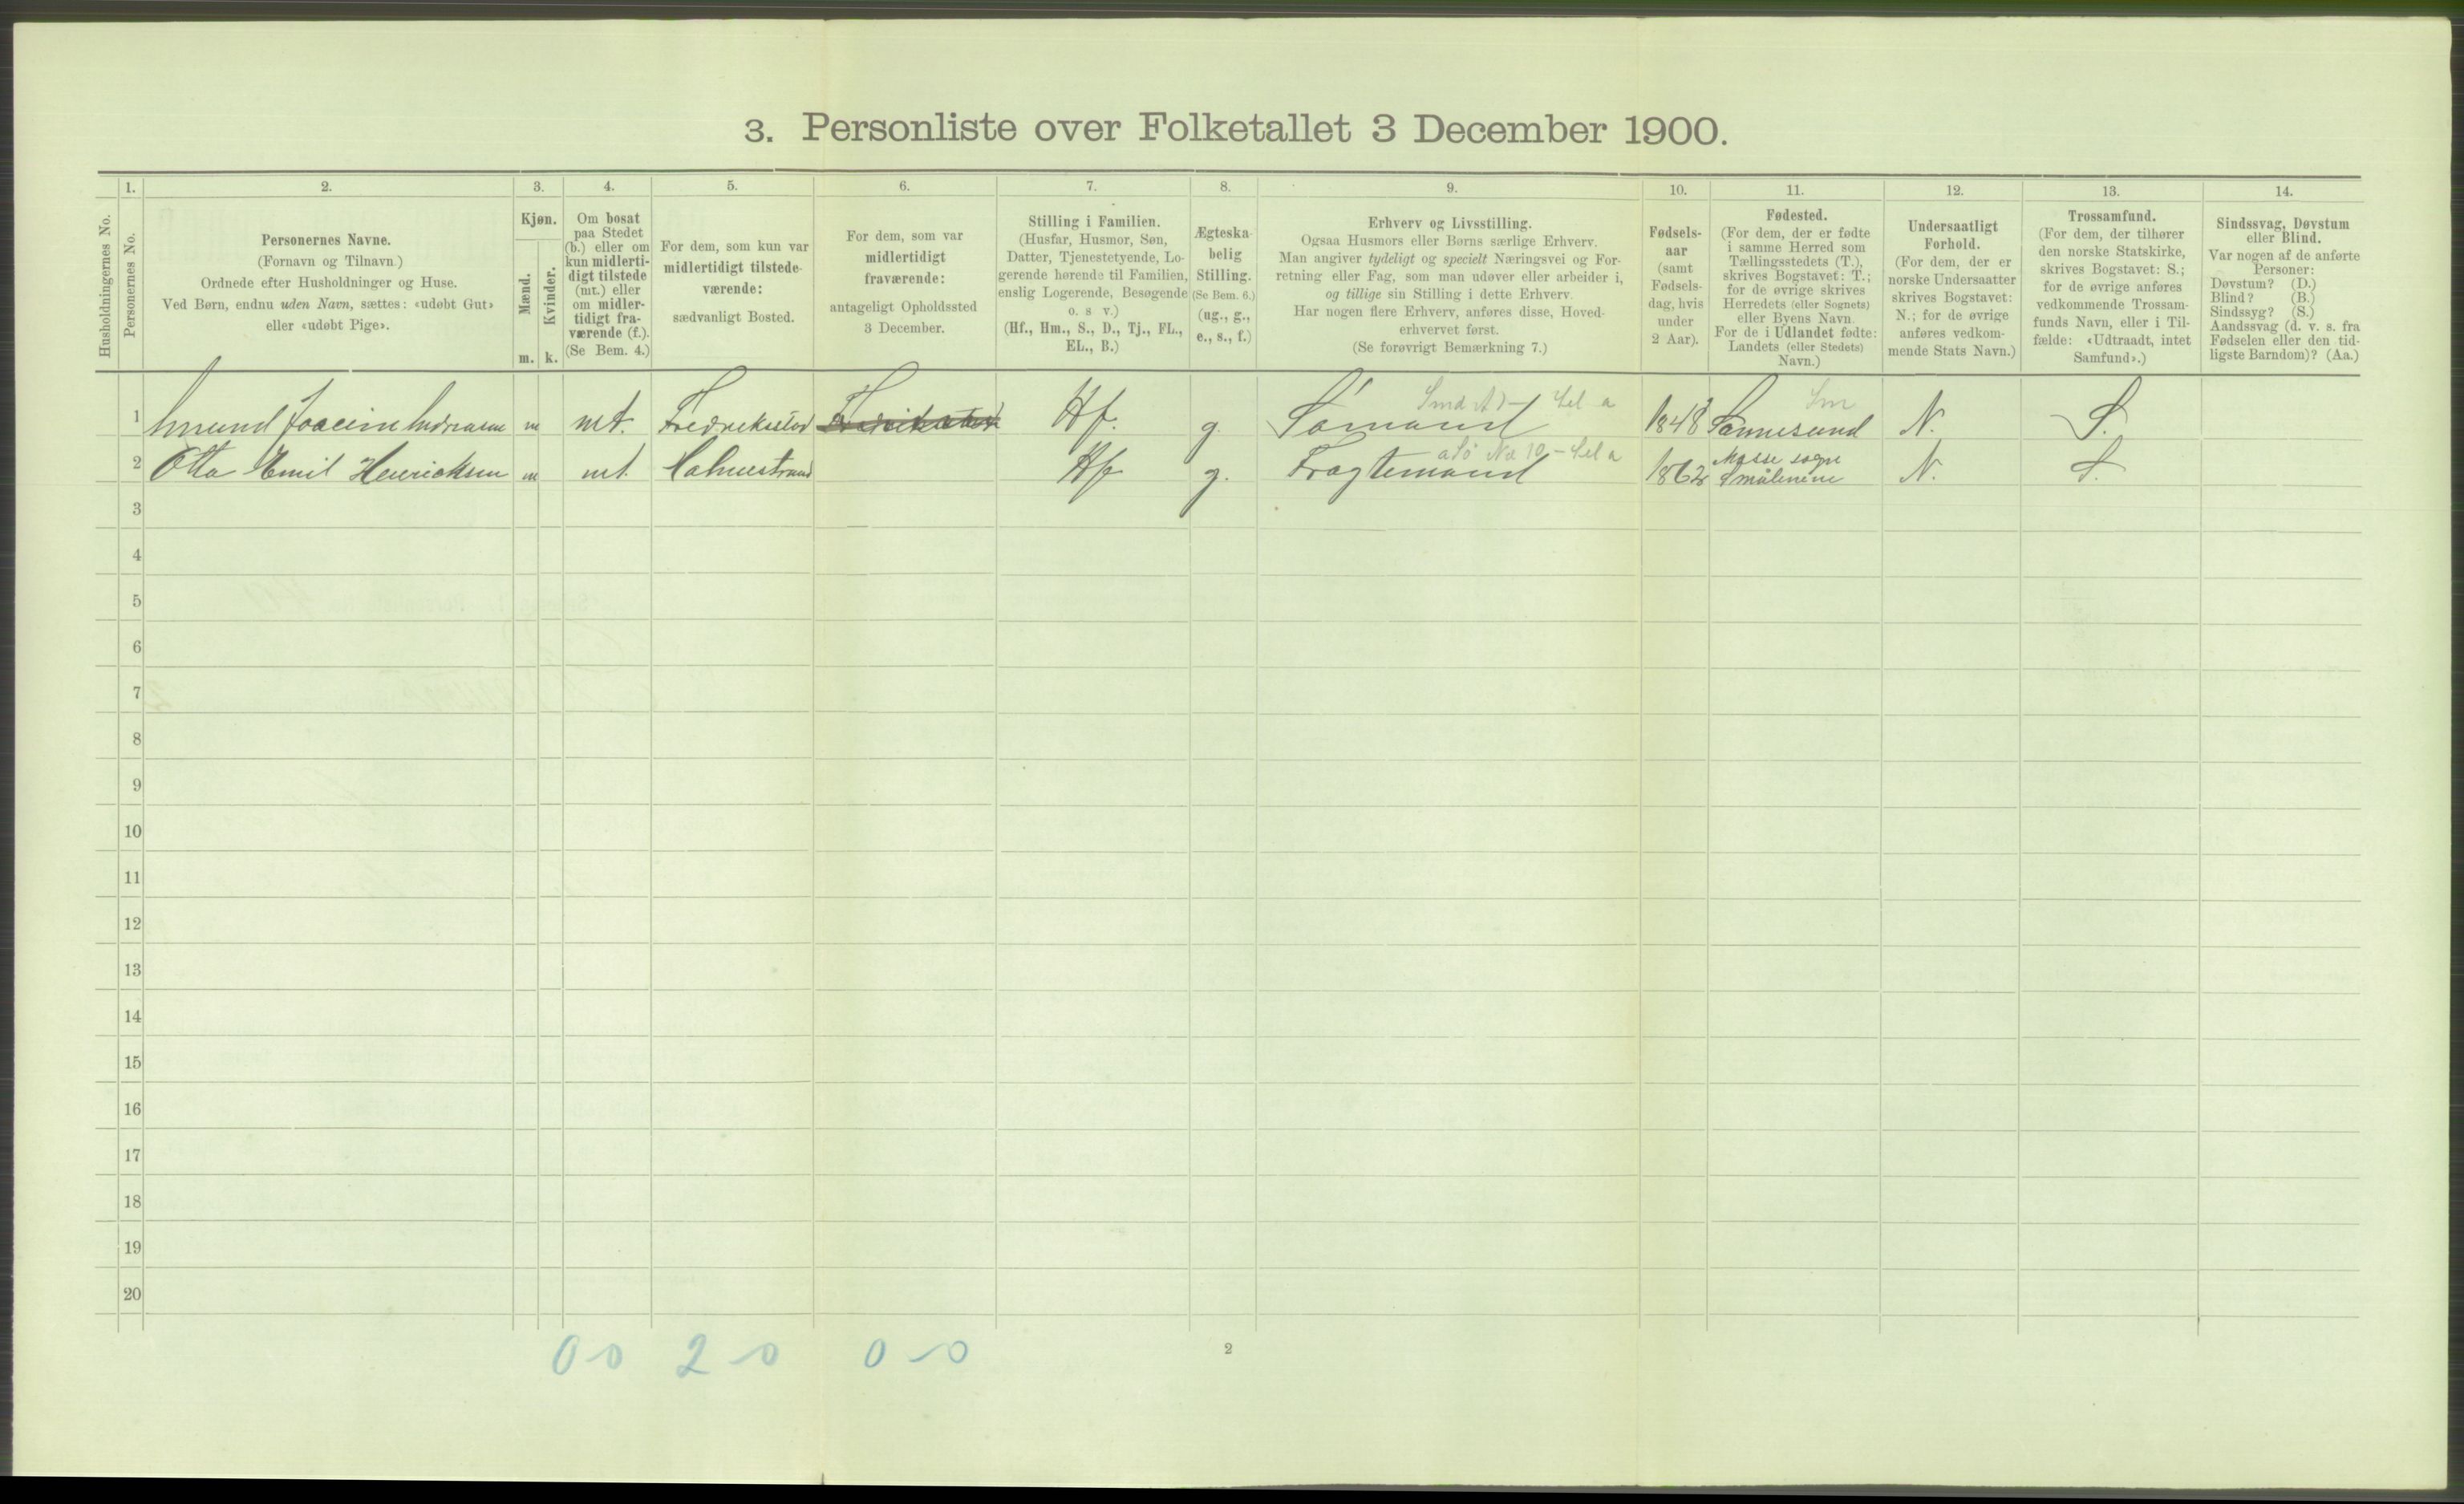 3. Personliste over Folketallet 3 December 1900.
1. 2. 3. 4. 5. 6. 7. 8. 9. 10. 11. 12. 13. 14.
Husholdningernes No.
Personernes No.
Personernes Navne.
(Fornavn og Tilnavn)
Ordnede efter Husholdninger og Huse.
Ved Børn, endnu uden Navn, sættes: «udøbt Gut»
eller «udøbt Pige».
Kjøn.
Mænd.
Kvinder.
m. k.
Om bosat
paa Stedet
(b.) eller om
kun midlerti-
digt tilstede
(mt.) eller
om midler-
tidigt fra-
værende (f.).
(Se Bem. 4.)
For dem, som kun var
midlertidigt tilstede-
værende:
sædvanligt Bosted.
For dem, som var
midlertidigt
fraværende:
antageligt Opholdssted
3 December.
Stilling i Familien.
(Husfar, Husmor, Søn,
Datter, Tjenestetyende, Lo-
gerende hørende til Familien,
enslig Logerende, Besøgende
o. s v.)
(Hf., Hm., S., D., Tj., FL.,
EL., B.)
Ægteska-
belig
Stilling.
(Se Bem. 6.)
(ug., g.,
e., s., f.)
Erhverv og Livsstilling.
Ogsaa Husmors eller Børns særlige Erhverv.
Man angiver tydeligt og specielt Næringsvei og For-
retning eller Fag, som man udøver eller arbeider i,
og tillige sin Stilling i dette Erhverv.
Har nogen flere Erhverv, anføres disse, Hoved-
erhvervet først.
(Se forøvrigt Bemærkning 7.)
Fødsels-
aar
(samt
Fødsels-
dag, hvis
under
2 Aar).
Fødested.
(For dem, der er fødte
i samme Herred som
Tællingsstedets (T.),
skrives Bogstavet: T.;
for de øvrige skrives
Herredets (eller Sognets)
eller Byens Navn.
For de i Udlandet fødte:
Landets (eller Stedets)
Navn.)
Undersaatligt
Forhold.
(For dem, der er
norske Undersaatter
skrives Bogstavet:
N.; for de øvrige
anføres vedkom-
mende Stats Navn.)
Trossamfund.
(For dem, der tilhører
den norske Statskirke,
skrives Bogstavet: S.;
for de øvrige anføres
vedkommende Trossam-
funds Navn, eller i Til-
fælde: «Udtraadt, intet
Samfund».)
Sindssvag, Døvstum
eller Blind.
Var nogen af de anførte
Personer:
Døvstum? (D.)
Blind? (B.)
Sindssyg? (S.)
Aandssvag (d. v. s. fra
Fødselen eller den tid-
ligste Barndom)? (Aa.)
1 m mt. Fredrikstad Hf. g. Sømand 1848 Sannesund N. S.
2 Otto Emil Henriksen m mt. Holmestrand Hf g. Fragtemand 1862 Mosse sogn Smålenene N. S.
3
4
5
6
7
8
9
10
11
12
13
14
15
16
17
18
19
20
0-0 2-0 0-0
2